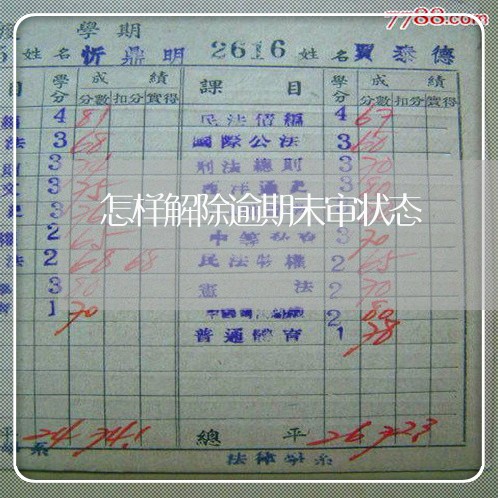 7788.com
學期
姓名 忻鼎明 2616 姓名 賈泰德
目 學分 成績 課目 學分 成績
分數 扣分 實得 分數 扣分 實得
4 81 民法債編 4 67
法 3 68 國際公法 3 60
3 刑法總則 3 70
3 75 西洋通史 3 80
怎样解除逾期未审状态
2 65 3 70
法 2 68 68 民法物權 2 65
3 80 憲法 2 70
1 70 2 80
普通體育 1 78
平 24 74.1 總平 26 72.3
系 法律學系